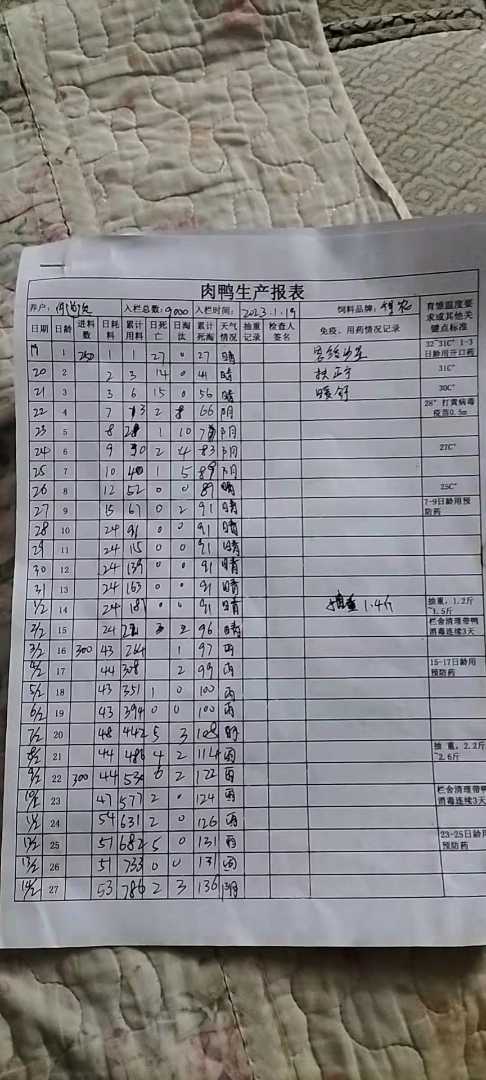 肉鸭生产报表
养户: 入栏总数: 9000 入栏时间: 2023.1.19 饲料品牌: 育雏温度要求或其他关键点标准
日期 日龄 进料数 日耗料 累计用料 日死亡 日淘汰 累计死淘 天气情况 抽重记录 检查人签名 免疫、用药情况记录
1 250 1 1 27 0 27 晴 32°31C° 1-3日龄用开口药
20 2 2 3 14 0 41 晴 扶正宁 31C°
21 3 3 6 15 0 56 晴 暖舒 30C°
22 4 7 13 2 8 66 阴 28° 打黄病毒疫苗0.5m
23 5 8 1 10 阴
24 6 9 30 2 4 83 阴 27C°
25 7 10 40 1 5 89 阴
26 8 12 52 0 0 89 晴 25C°
27 9 15 67 0 2 91 晴 7-9日龄用预防药
28 10 24 91 0 0 91 晴
29 11 24 115 0 0 91 晴
30 12 24 139 0 0 91 晴
31 13 24 163 0 0 91 晴
1/2 14 24 187 0 0 91 晴 抽重 1.4斤 抽重,1.2斤~1.5斤
2/2 15 24 3 2 96 晴 栏舍清理带鸭消毒连续3天
3/2 16 300 43 264 1 97 雨
4/2 17 44 308 2 99 雨 15-17日龄用预防药
5/2 18 43 351 1 0 100 雨
6/2 19 43 394 0 0 100 雨
7/2 20 48 442 5 3 108 阴
8/2 21 44 486 4 2 114 雨 抽 重,2.2斤~2.6斤
9/2 22 300 44 530 6 2 122 雨
10/2 23 47 577 2 0 124 雨 栏舍清理带鸭消毒连续3天
11/2 24 54 631 2 0 126 雨
12/2 25 51 682 5 0 131 雨 23-25日龄用预防药
13/2 26 51 733 0 0 131 雨
14/2 27 53 786 2 3 136 阴